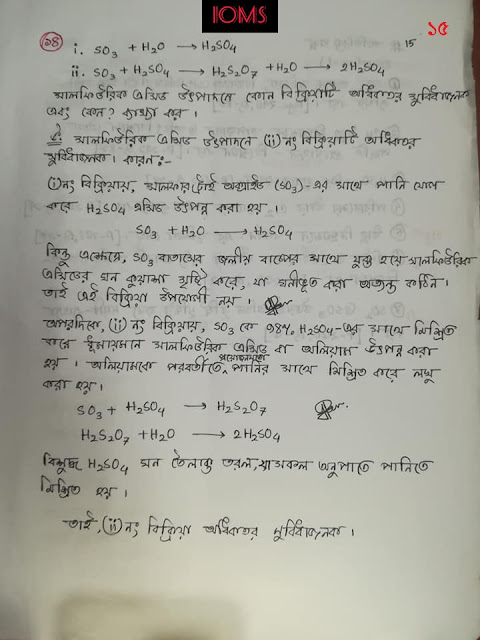 IOMS
১৫
15
(১৪) i. SO3 + H2O → H2SO4
ii. SO3 + H2SO4 → H2S2O7 + H2O → 2H2SO4
সালফিউরিক এসিড উৎপাদনে কোন বিক্রিয়াটি অধিকতর সুবিধাজনক
এবং কেন? ব্যাখ্যা কর।
সালফিউরিক এসিড উৎপাদনে (ii) নং বিক্রিয়াটি অধিকতর
সুবিধাজনক। কারণ:-
(i) নং বিক্রিয়ায়, সালফার ট্রাই অক্সাইড (SO3) -এর সাথে পানি যোগ
করে H2SO4 এসিড উৎপন্ন করা হয়।
SO3 + H2O → H2SO4
কিন্তু এক্ষেত্রে, SO3 বাতাসের জলীয় বাষ্পের সাথে যুক্ত হয়ে সালফিউরিক
এসিডের ঘন কুয়াশা সৃষ্টি করে, যা ঘনীভূত করা অত্যন্ত কঠিন।
তাই এই বিক্রিয়া উপযোগী নয়।
অপরদিকে, (ii) নং বিক্রিয়ায়, SO3 কে 98% H2SO4 -এর সাথে মিশ্রিত
করে ধূমায়মান সালফিউরিক এসিড বা অলিয়াম উৎপন্ন করা
হয়। অলিয়ামকে পরবর্তীতে প্রয়োজনমতো পানির সাথে মিশ্রিত করে লঘু
করা হয়।
SO3 + H2SO4 → H2S2O7
H2S2O7 + H2O → 2H2SO4
বিশুদ্ধ H2SO4 ঘন তৈলাক্ত তরল, যা সকল অনুপাতে পানিতে
মিশ্রিত হয়।
তাই, (ii) নং বিক্রিয়া অধিকতর সুবিধাজনক।